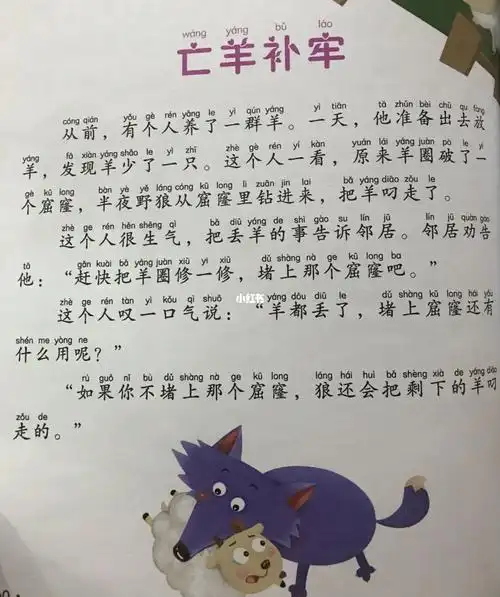 wáng yáng bǔ láo
亡羊补牢
cóng qián yǒu gè rén yǎng le yì qún yáng yì tiān tā zhǔn bèi chū qu fàng
从前，有个人养了一群羊。一天，他准备出去放
yáng fā xiàn yáng shǎo le yì zhī zhè ge rén yí kàn yuán lái yáng juàn pò le yí
羊，发现羊少了一只。这个人一看，原来羊圈破了一
gè kū long bàn yè yě láng cóng kū long li zuān jìn lai bǎ yáng diāo zǒu le
个窟窿，半夜野狼从窟窿里钻进来，把羊叼走了。
zhè ge rén hěn shēng qì bǎ diū yáng de shì gào su lín jū lín jū quàn gào
这个人很生气，把丢羊的事告诉邻居。邻居劝告
tā gǎn kuài bǎ yáng juàn xiū yì xiū dǔ shàng nà ge kū long ba
他：“赶快把羊圈修一修，堵上那个窟窿吧。”
zhè ge rén tàn yì kǒu qì shuō yáng dōu diū le dǔ shàng kū long hái yǒu
这个人叹一口气说：“羊都丢了，堵上窟窿还有
小红书
shén me yòng ne
什么用呢？”
rú guǒ nǐ bù dǔ shàng nà ge kū long láng hái huì bǎ shèng xià de yáng diāo
“如果你不堵上那个窟窿，狼还会把剩下的羊叼
zǒu de
走的。”